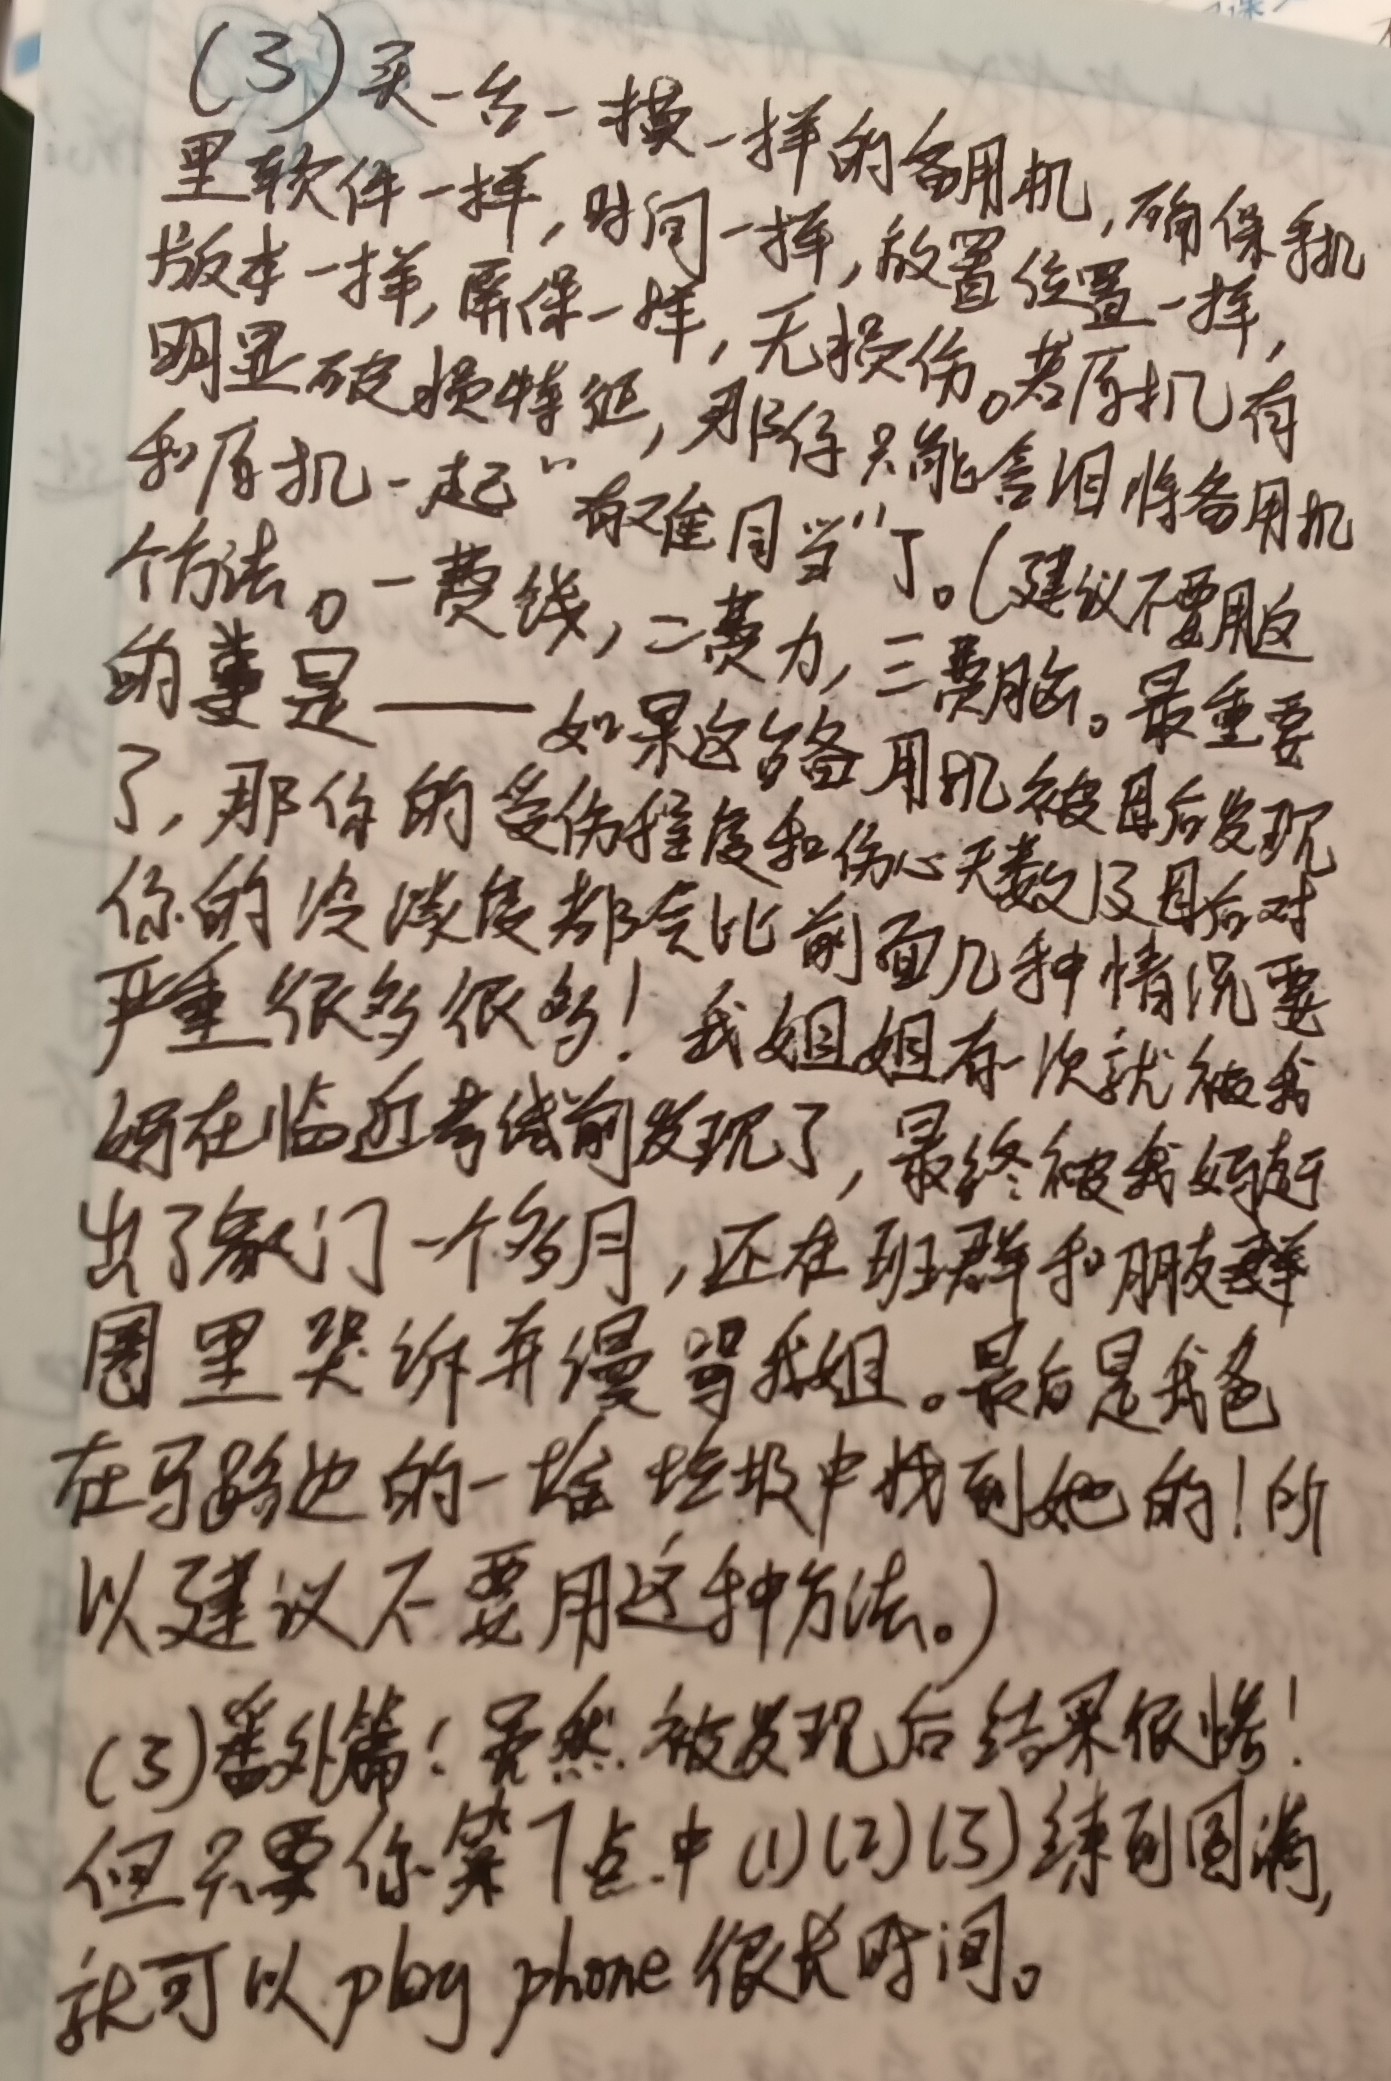 (3)买一台一模一样的备用机,确保手机
里软件一样,时间一样,放置位置一样,
版本一样,屏保一样,无损伤。若原机有
明显破损特征,那你只能含泪将备用机
和原机一起“有难同当”了。(建议不要用这
个方法。一费钱,二费力,三费脑。最重要
的事是——如果这台备用机被母后发现
了,那你的受伤程度和伤心天数及母后对
你的冷淡度都会比前面几种情况要
严重很多很多!我姐姐有一次就被我
妈在临近考试前发现了,最终被我妈赶
出了家门一个多月,还在班群和朋友
圈里哭诉并谩骂我姐。最后是我爸
在马路边的一堆垃圾中找到她的!所
以建议不要用这种方法。)
(3)番外篇:虽然被发现后结果很惨!
但只要你第7点中(1)(2)(3)练到圆满,
就可以play phone很长时间。